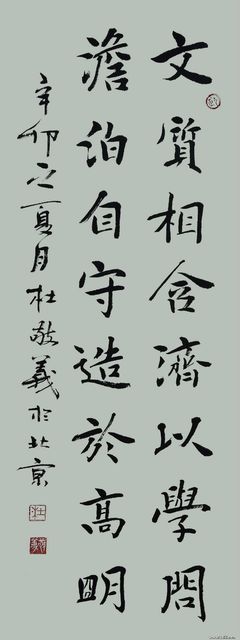 文質相含濟以學問
澹泊自守造於高明
辛卯之夏月杜敬義於北京